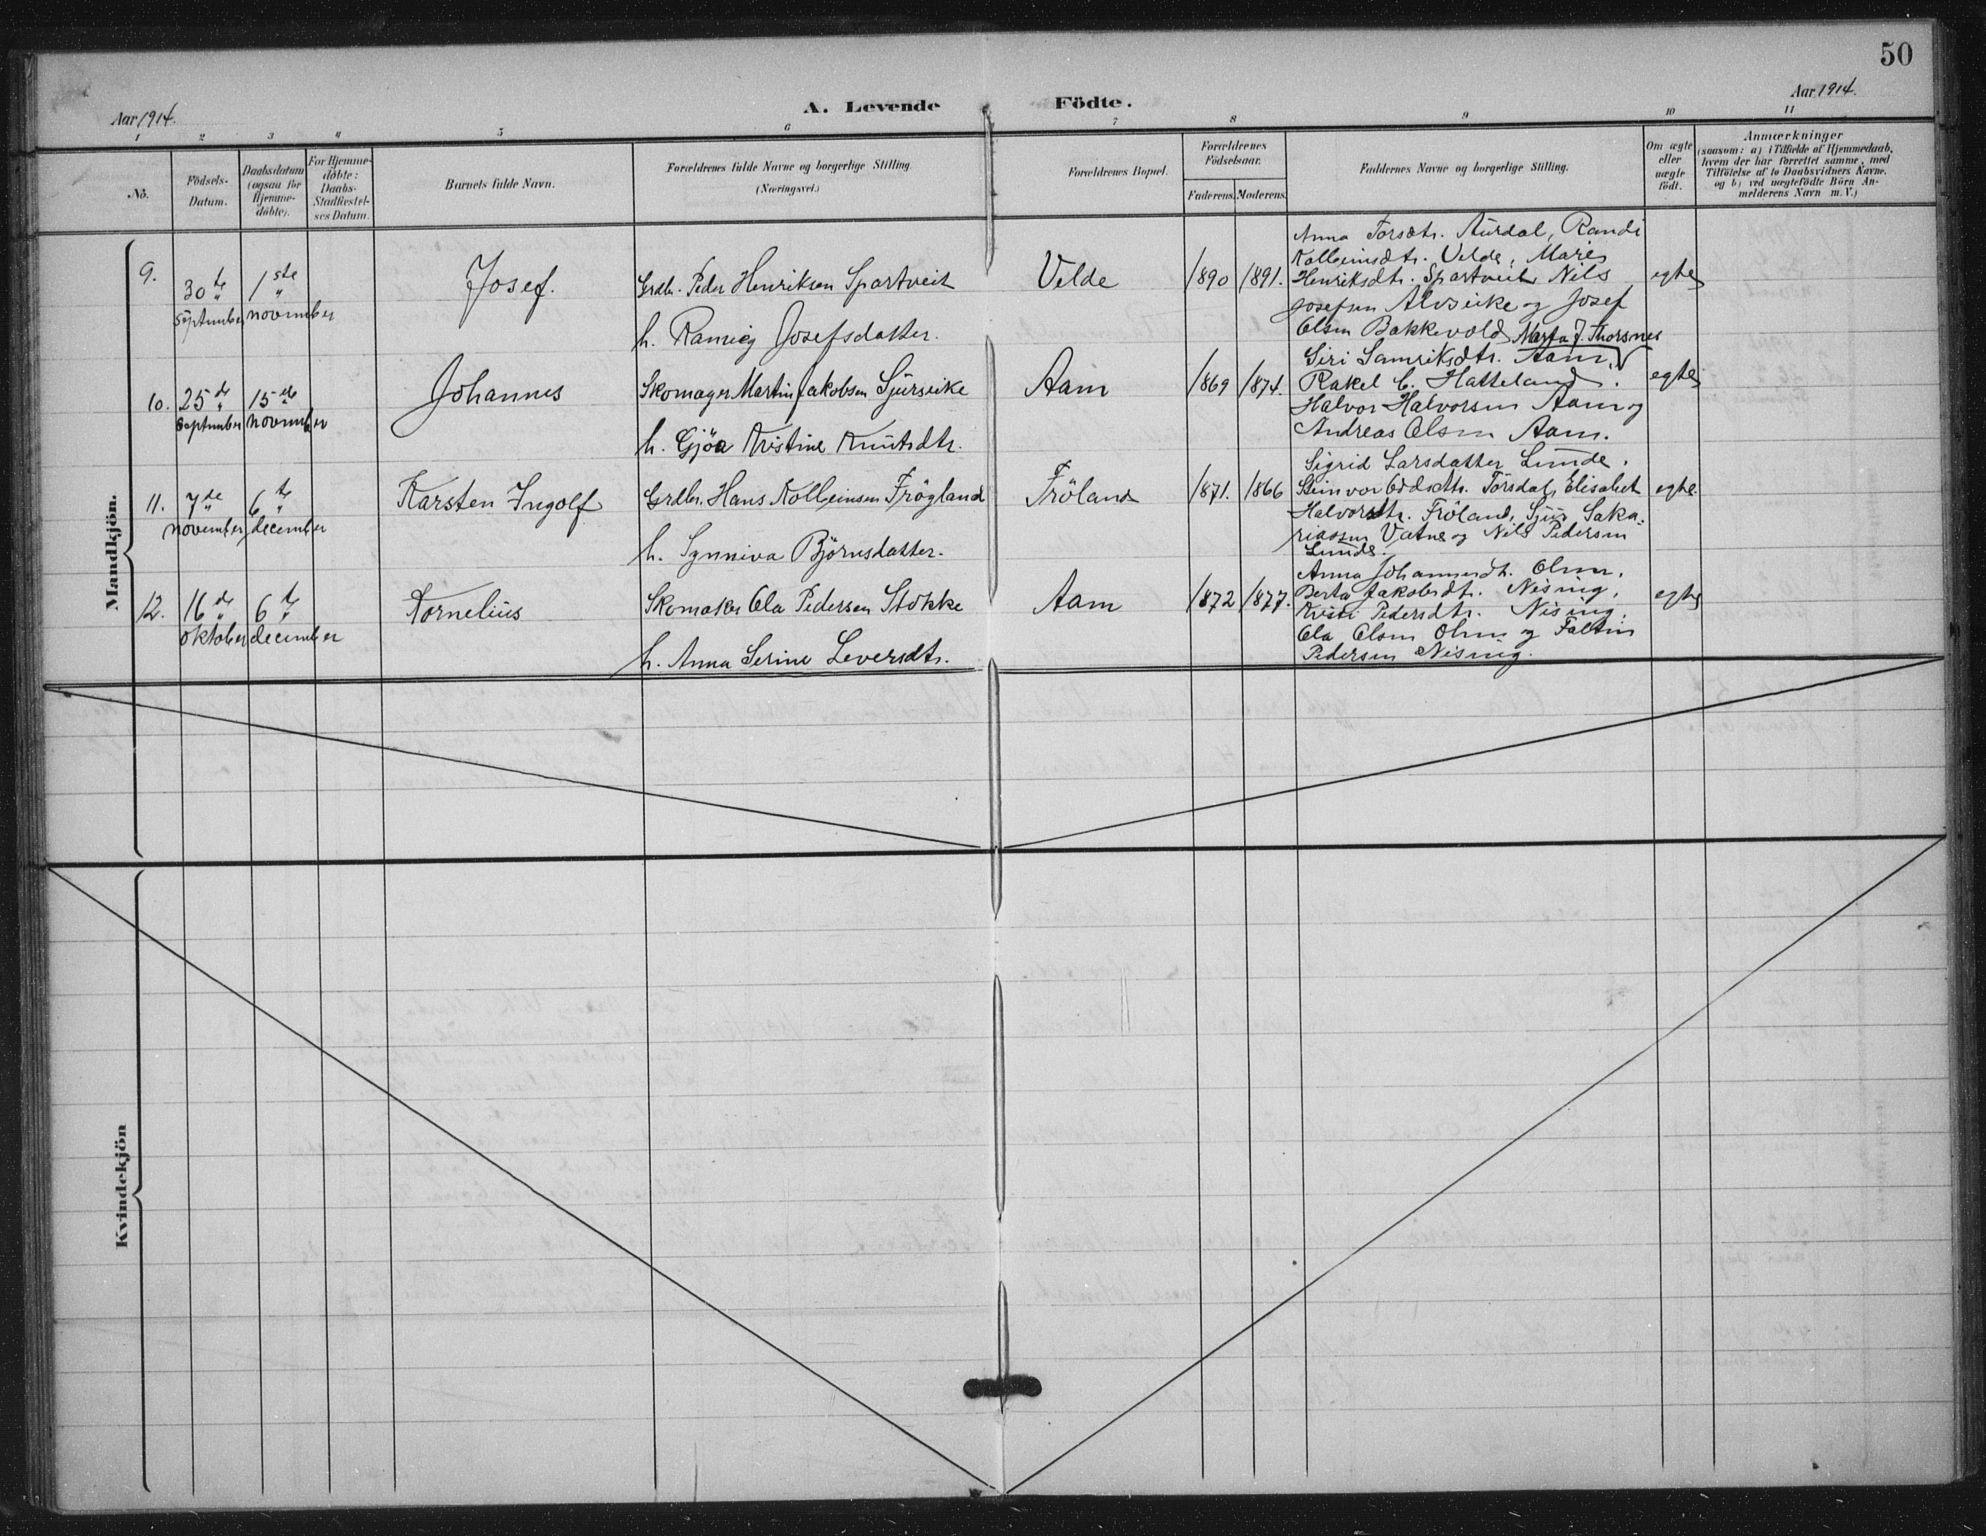 50
Aar 1914.
A. Levende Födte.
Aar 1914.
1 2 3 4 5 6 7 8 9 10 11
No.
Födsels-
Datum.
Daabsdatum
(ogsaa for
Hjemme-
döbte).
For Hjemme-
döbte:
Daabs-
Stadfæstel-
ses Datum.
Barnets fulde Navn.
Forældrenes fulde Navne og borgerlige Stilling.
(Næringsvei.)
Forældrenes Bopæl.
Forældrenes
Födselsaar.
Faderens. Moderens.
Faddernes Navne og borgerlige Stilling.
Om ægte
eller
uægte
födt.
Anmærkninger
(saasom: a) i Tilfælde af Hjemmedaab,
hvem der har forrettet samme, med
Tilföielse af to Daabsvidners Navne,
og b) ved uægtefödte Börn An-
melderens Navn m. V.)
Mandkjön.
9.
30te
september
1ste
november
Josef.
Grdbr. Peder Henriksen Spartveit
h. Ranveig Josefsdatter.
Velde
1890 1891.
Anna Torsdtr. Aurdal, Randi
Kolbeinsdtr. Velde, Marie
Henriksdtr. Spartveit Nils
Josefsen Alvseike og Josef
Olsen Bakkevold
egte
10.
25de
september
15de
november
Johannes
Skomager Martin Jakobsen Sjurseike
h. Gjöa Kristine Knutsdtr.
Aam
1869 1874.
Marta J. Thorsnes
Siri Samriksdtr. Aam,
Rakel C. Hatteland.
Halvor Halvorsen Aam og
Andreas Olsen Aam.
egte
11.
7de
november
6te
december
Karsten Ingolf
Grdbr. Hans Kolbeinsen Frögland
h. Synniva Björnsdatter.
Fröland
1871. 1866
Sigrid Larsdatter Lunde,
Steinvor Oddsdtr. Torsdal, Elisabet
Halvorsdtr. Fröland, Sjur Saka-
riassen Vatne og Nils Pedersen
Lunde.
egte.
12.
16de
oktober
6te
december
Kornelius
Skomaker Ola Pedersen Stokke
h. Anna Serine Leversdtr.
Aam
1872 1877.
Anna Johannesdtr. Ölen,
Berta Jakobsdtr. Nising,
Kristi Pedersdtr. Nising,
Ola Olsen Ölen og Faltin
Pedersen Nising.
egte
Kvindekjön